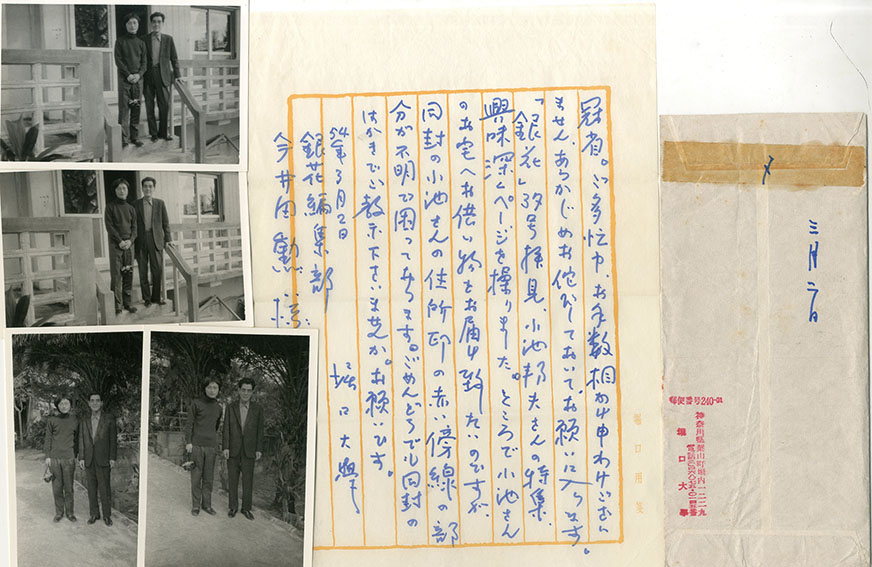 冠省。ご多忙中、お手数相かけ申わけござい
ません。あらかじめお侘びしておいて、お願いに入ります。
「銀花」37号拝見、小池邦夫さんの特集、
興味深くページを操りました。ところで小池さん
のお宅へお供い物をお届け致したいのですが、
同封の小池さんの住所印の赤い傍線の部
分が不明で困っております。ごめんどうでも同封の
はがきでご教示下さいませんか。お願いです。
54年3月2日
堀口大學
銀花編集部
今井田勲様
堀口用箋
〆
三月二日
郵便番号240-01
神奈川県葉山町堀内一二二九
堀口大學